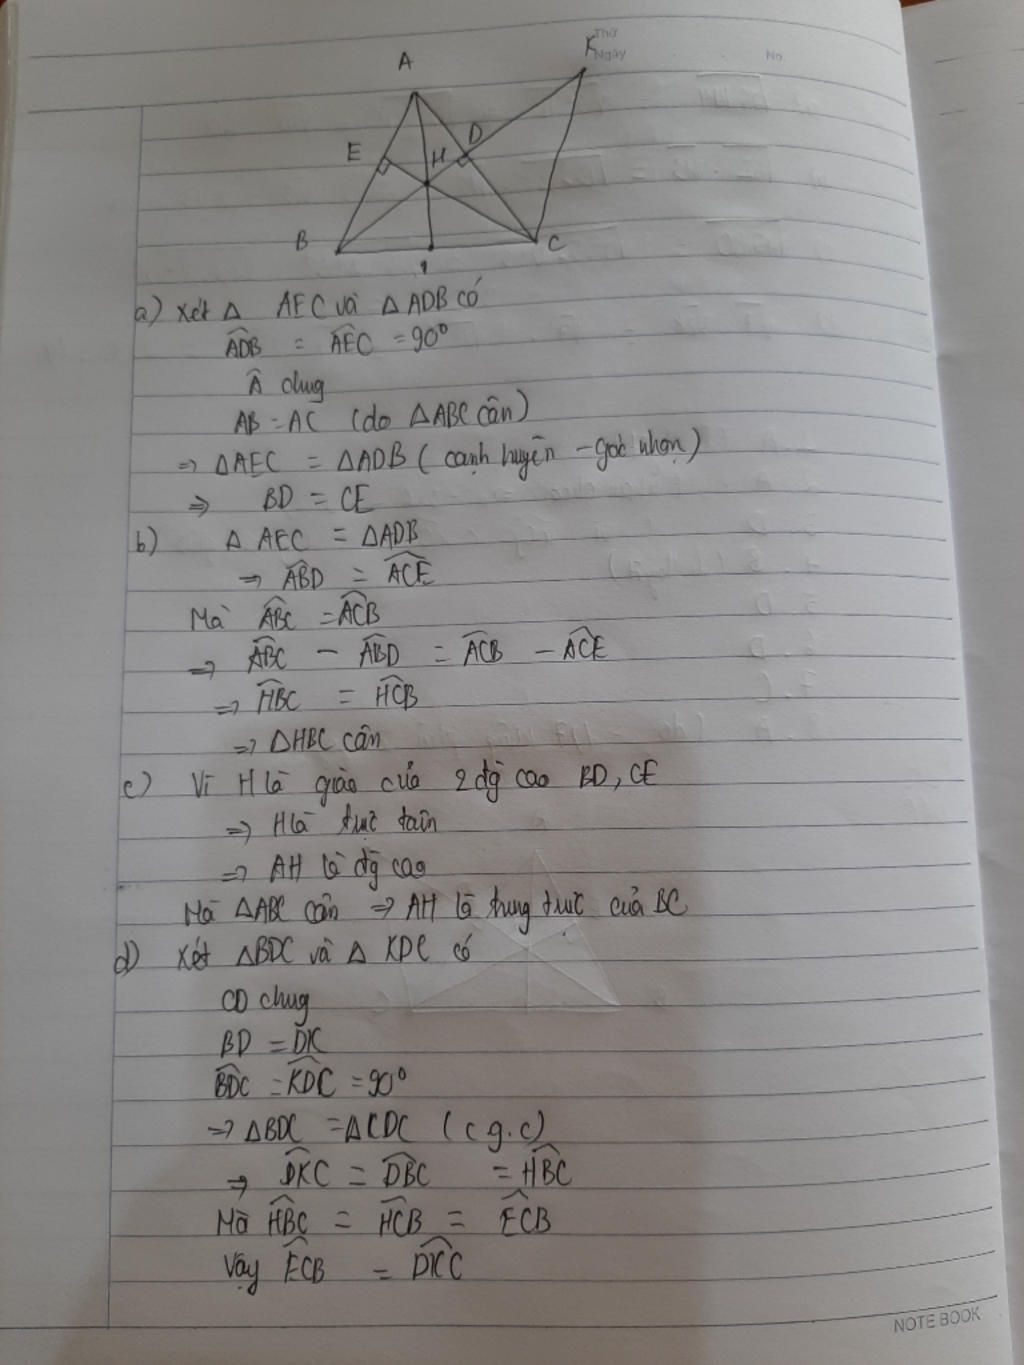 Thứ
Ngày
No.
A
K
E
H
D
B
C
I
a) Xét Δ AEC và Δ ADB có
ADB = AEC = 90°
A chug
AB = AC (do ΔABC cân)
=> ΔAEC = ΔADB (cạnh huyền - góc nhọn)
=> BD = CE
b) Δ AEC = ΔADB
=> ABD = ACE
Mà ABC = ACB
=> ABC - ABD = ACB - ACE
=> HBC = HCB
=> ΔHBC cân
c) Vì H là giao của 2 đg cao BD, CE
=> H là trực tâm
=> AH là đg cao
Mà ΔABC cân => AH là trung trực của BC
d) Xét ΔBDC và Δ KDC có
CD chug
BD = DK
BDC = KDC = 90°
=> ΔBDC = ΔCDC (c g.c)
=> DKC = DBC = HBC
Mà HBC = HCB = ECB
Vậy ECB = DKC
NOTE BOOK